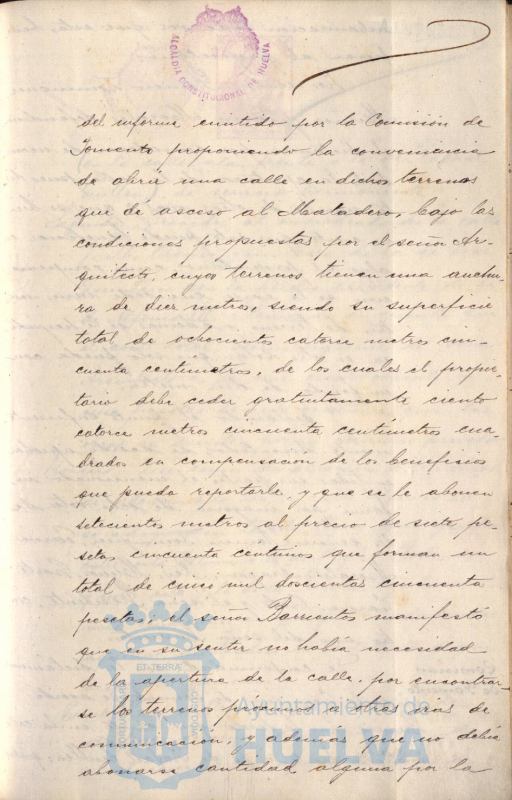 ALCALDIA CONSTITUCIONAL DE HUELVA
del informe emitido por la Comisión de
Fomento proponiendo la conveniencia
de abrir una calle en dichos terrenos
que dé acceso al Matadero, bajo las
condiciones propuestas por el señor Ar-
quitecto, cuyos terrenos tienen una anchu-
ra de diez metros, siendo su superficie
total de ochocientos catorce metros cin-
cuenta centímetros, de los cuales el propie-
tario debe ceder gratuitamente ciento
catorce metros cincuenta centímetros cua-
drados en compensación de los beneficios
que pueda reportarle, y que se le abonen
setecientos metros al precio de siete pe-
setas cincuenta centimos que forman un
total de cinco mil doscientas cincuenta
pesetas, el señor Barrientos manifestó
que en su sentir no había necesidad
de la apertura de la calle, por encontrar-
se los terrenos próximos a otras vias de
comunicación, y además que no debía
abonarse cantidad alguna por la
Ayuntamiento de
HUELVA